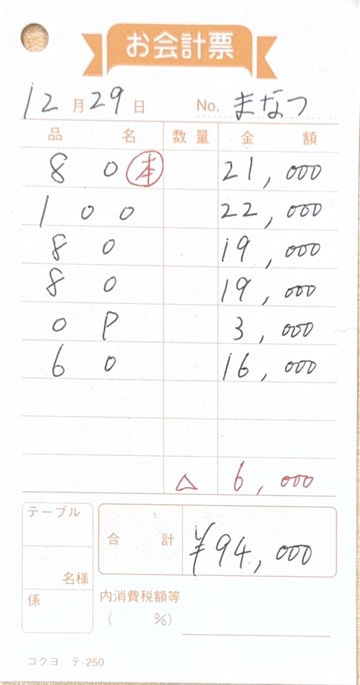 お会計票
12月29日 No. まなつ
品名 数量 金額
80 本 21,000
100 22,000
80 19,000
80 19,000
OP 3,000
60 16,000
△ 6,000
テーブル
合計 ¥94,000
名様
係 内消費税額等
( %)
コクヨ テ-250